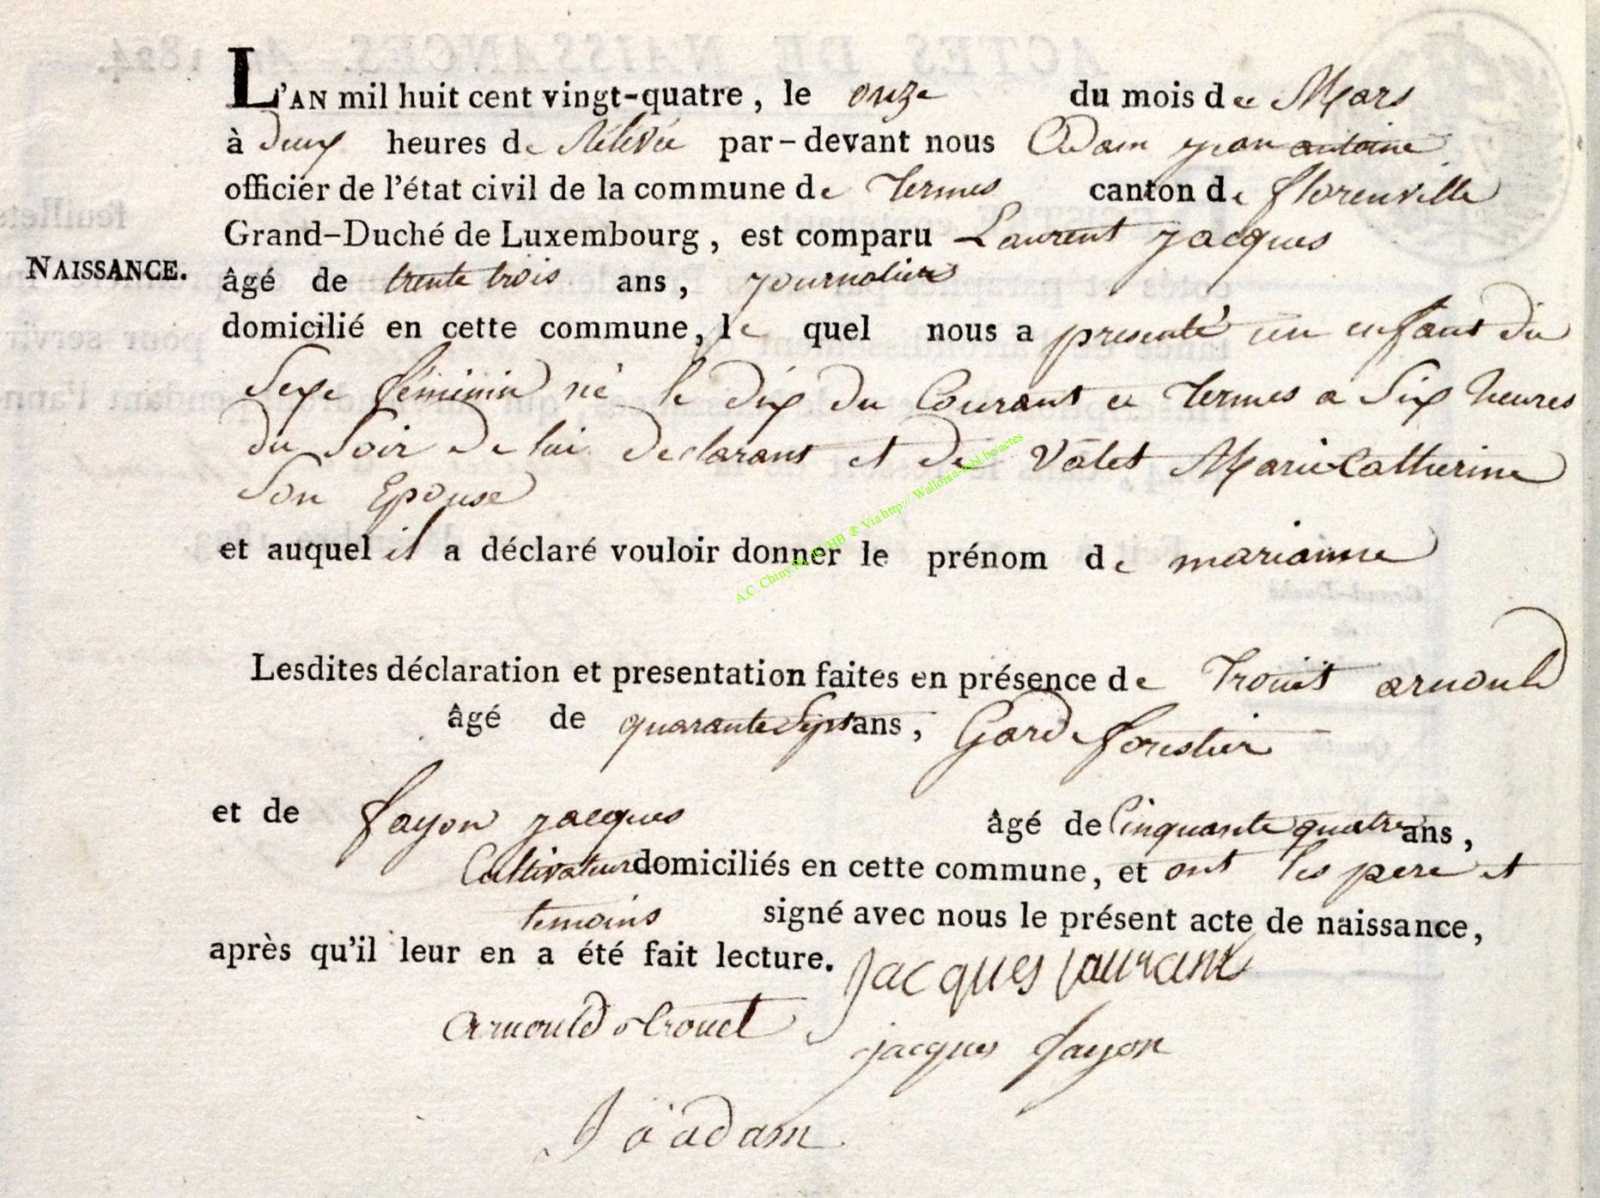 L'AN mil huit cent vingt-quatre, le onze du mois de Mars
à deux heures de Rélévée par-devant nous Adam jean antoine
officier de l'état civil de la commune de Termes canton de florenville
Grand-Duché de Luxembourg, est comparu Laurent jacques
NAISSANCE.
âgé de trente trois ans, journalier
domicilié en cette commune, le quel nous a presenté un enfant du
Sexe féminin né le dix du Courant a Termes a Six heures
du Soir de lui declarant et de Valet Marie Catherine
Son Epouse
et auquel il a déclaré vouloir donner le prénom de marianne
Lesdites déclaration et presentation faites en présence de Trouet arnould
âgé de quarante Sept ans, Garde forestier
et de fayon jacques âgé de Cinquante quatre ans,
Cultivateur domiciliés en cette commune, et ont les pere et
temoins signé avec nous le présent acte de naissance,
après qu'il leur en a été fait lecture.
jacques laurant
arnould trouet
jacques fayon
J a adam